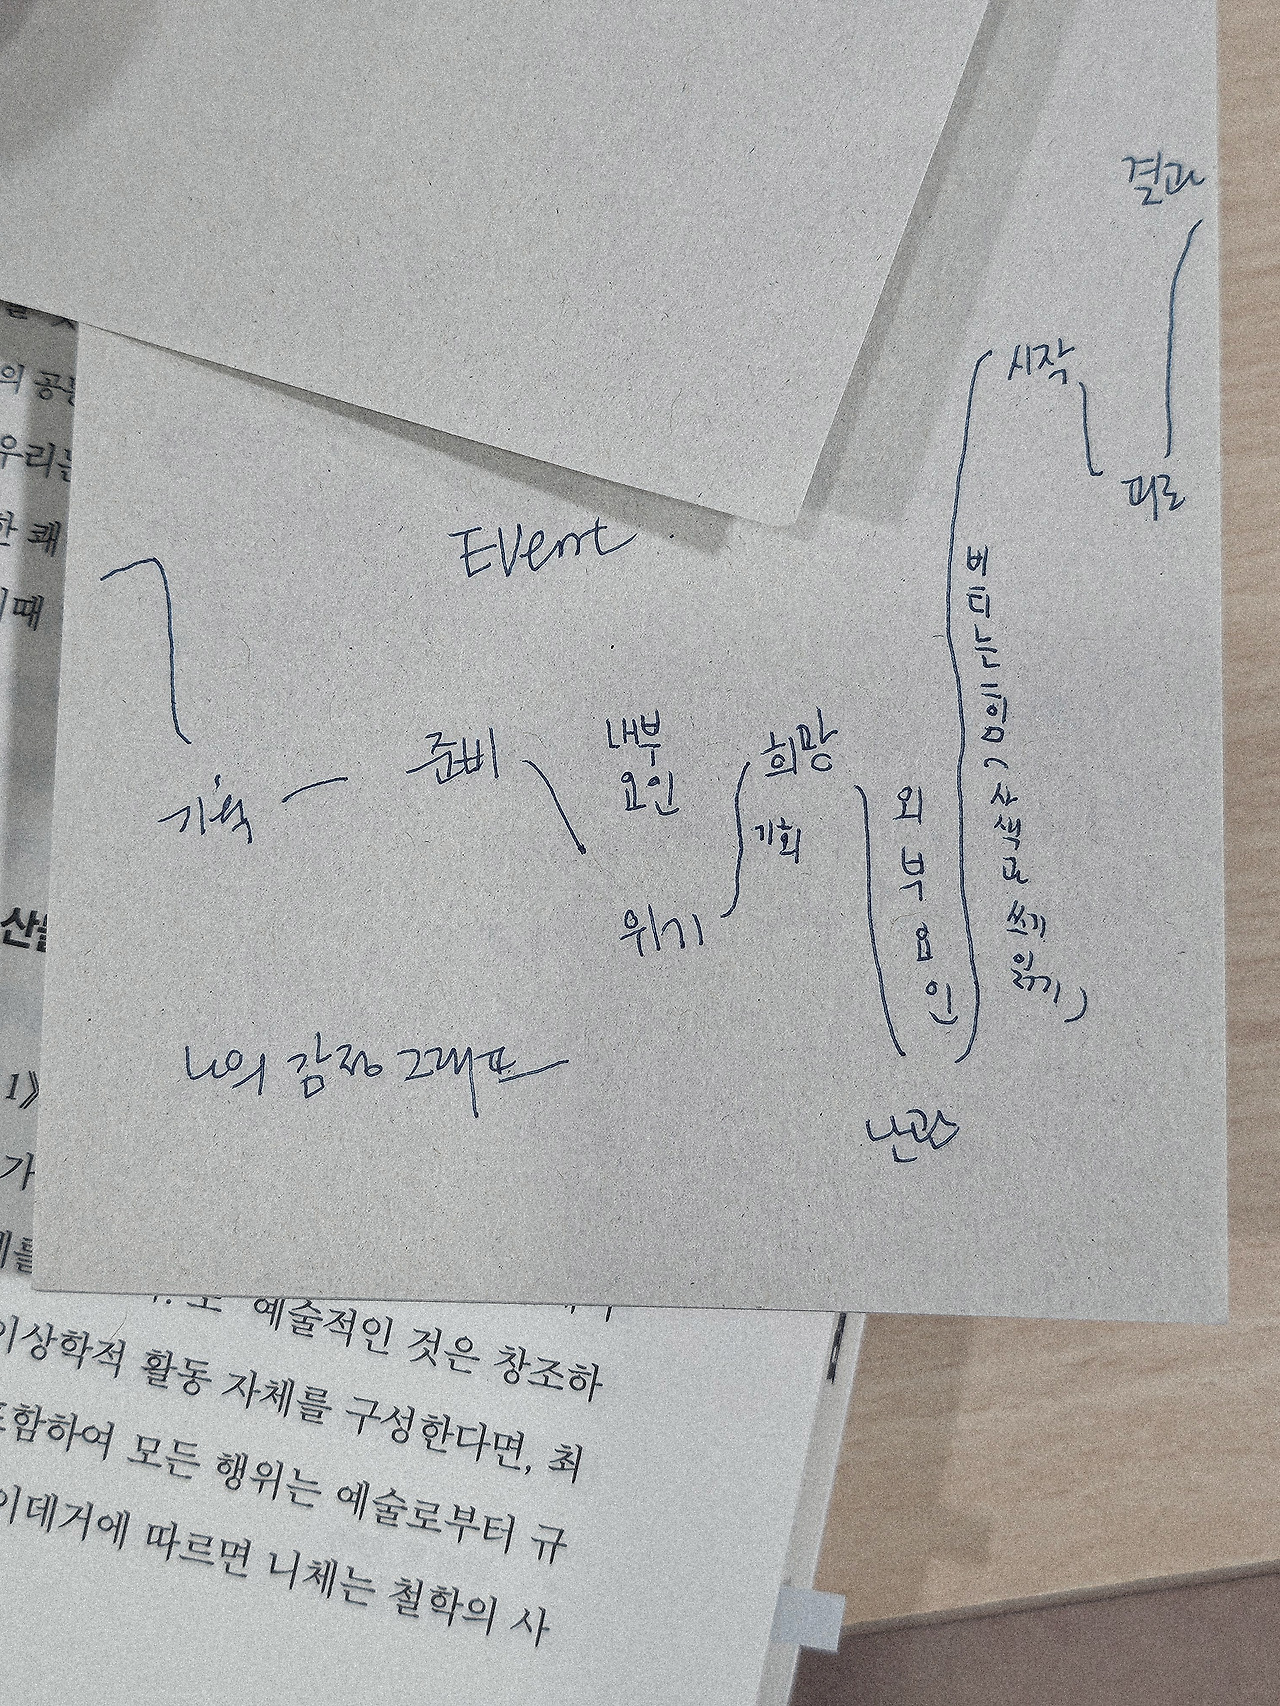 결과
시작
피로
Event
버티는 힘 (사색과 쓰기 읽기)
준비
내부
요인
희망
기회
기획
위기
외부요인
나의 감정 그래프
난관
의 공
우리는
한 쾌
때
1》
가
예술적인 것은 창조하
이상학적 활동 자체를 구성한다면, 최
포함하여 모든 행위는 예술로부터 규
이데거에 따르면 니체는 철학의 사